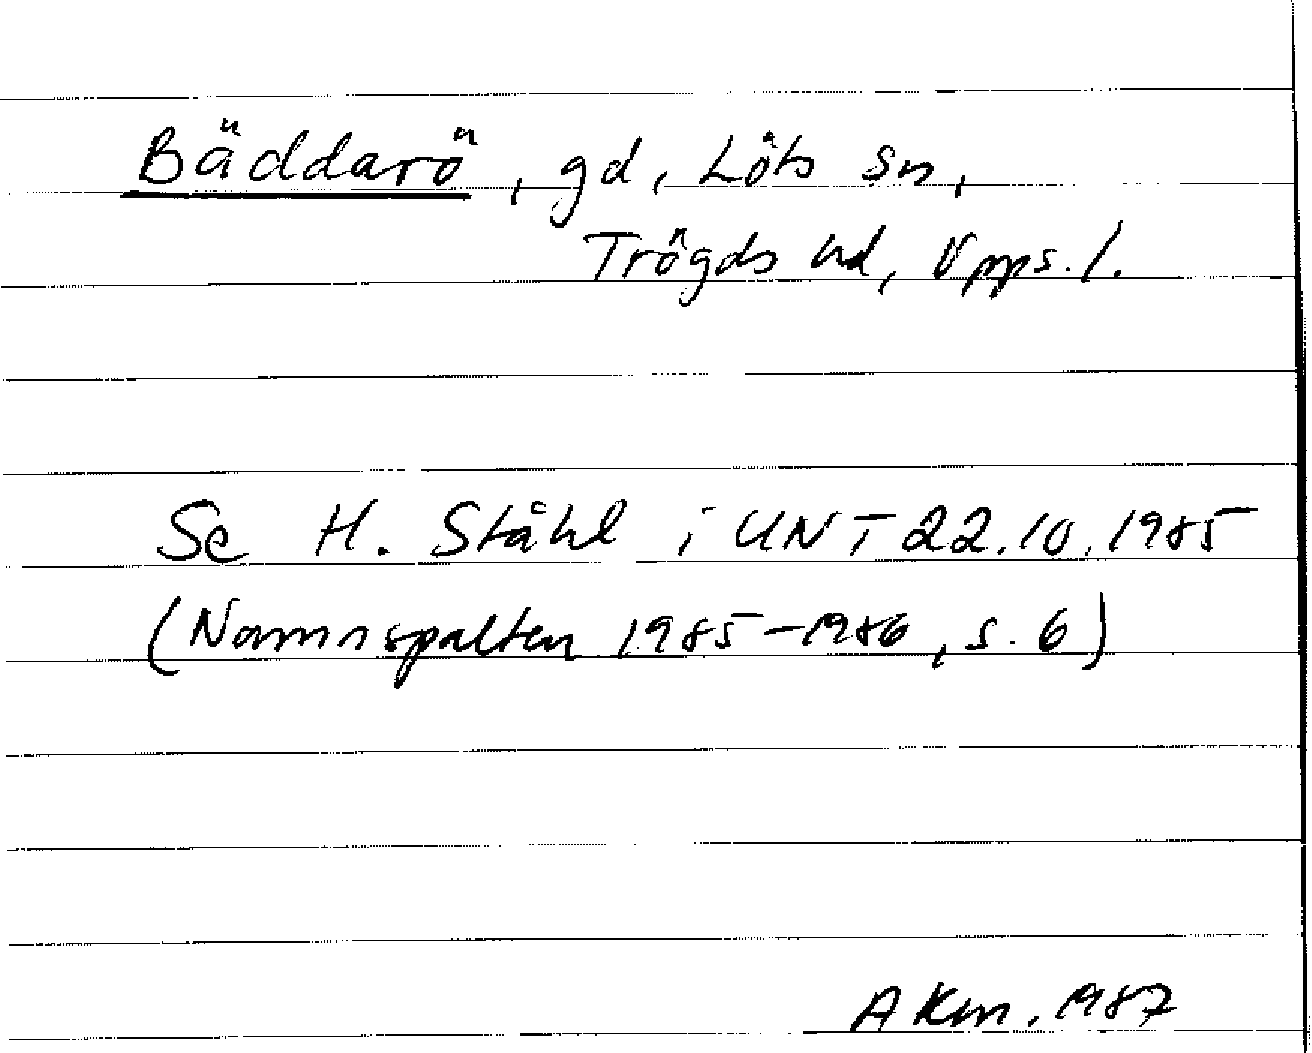 Bäddarö, gd, Löts sn,
Trögds hd, Upps. l.
Se H. Ståhl i UNT 22.10.1985
(Namnspalten 1985-1986, s. 6)
AKm. 1987